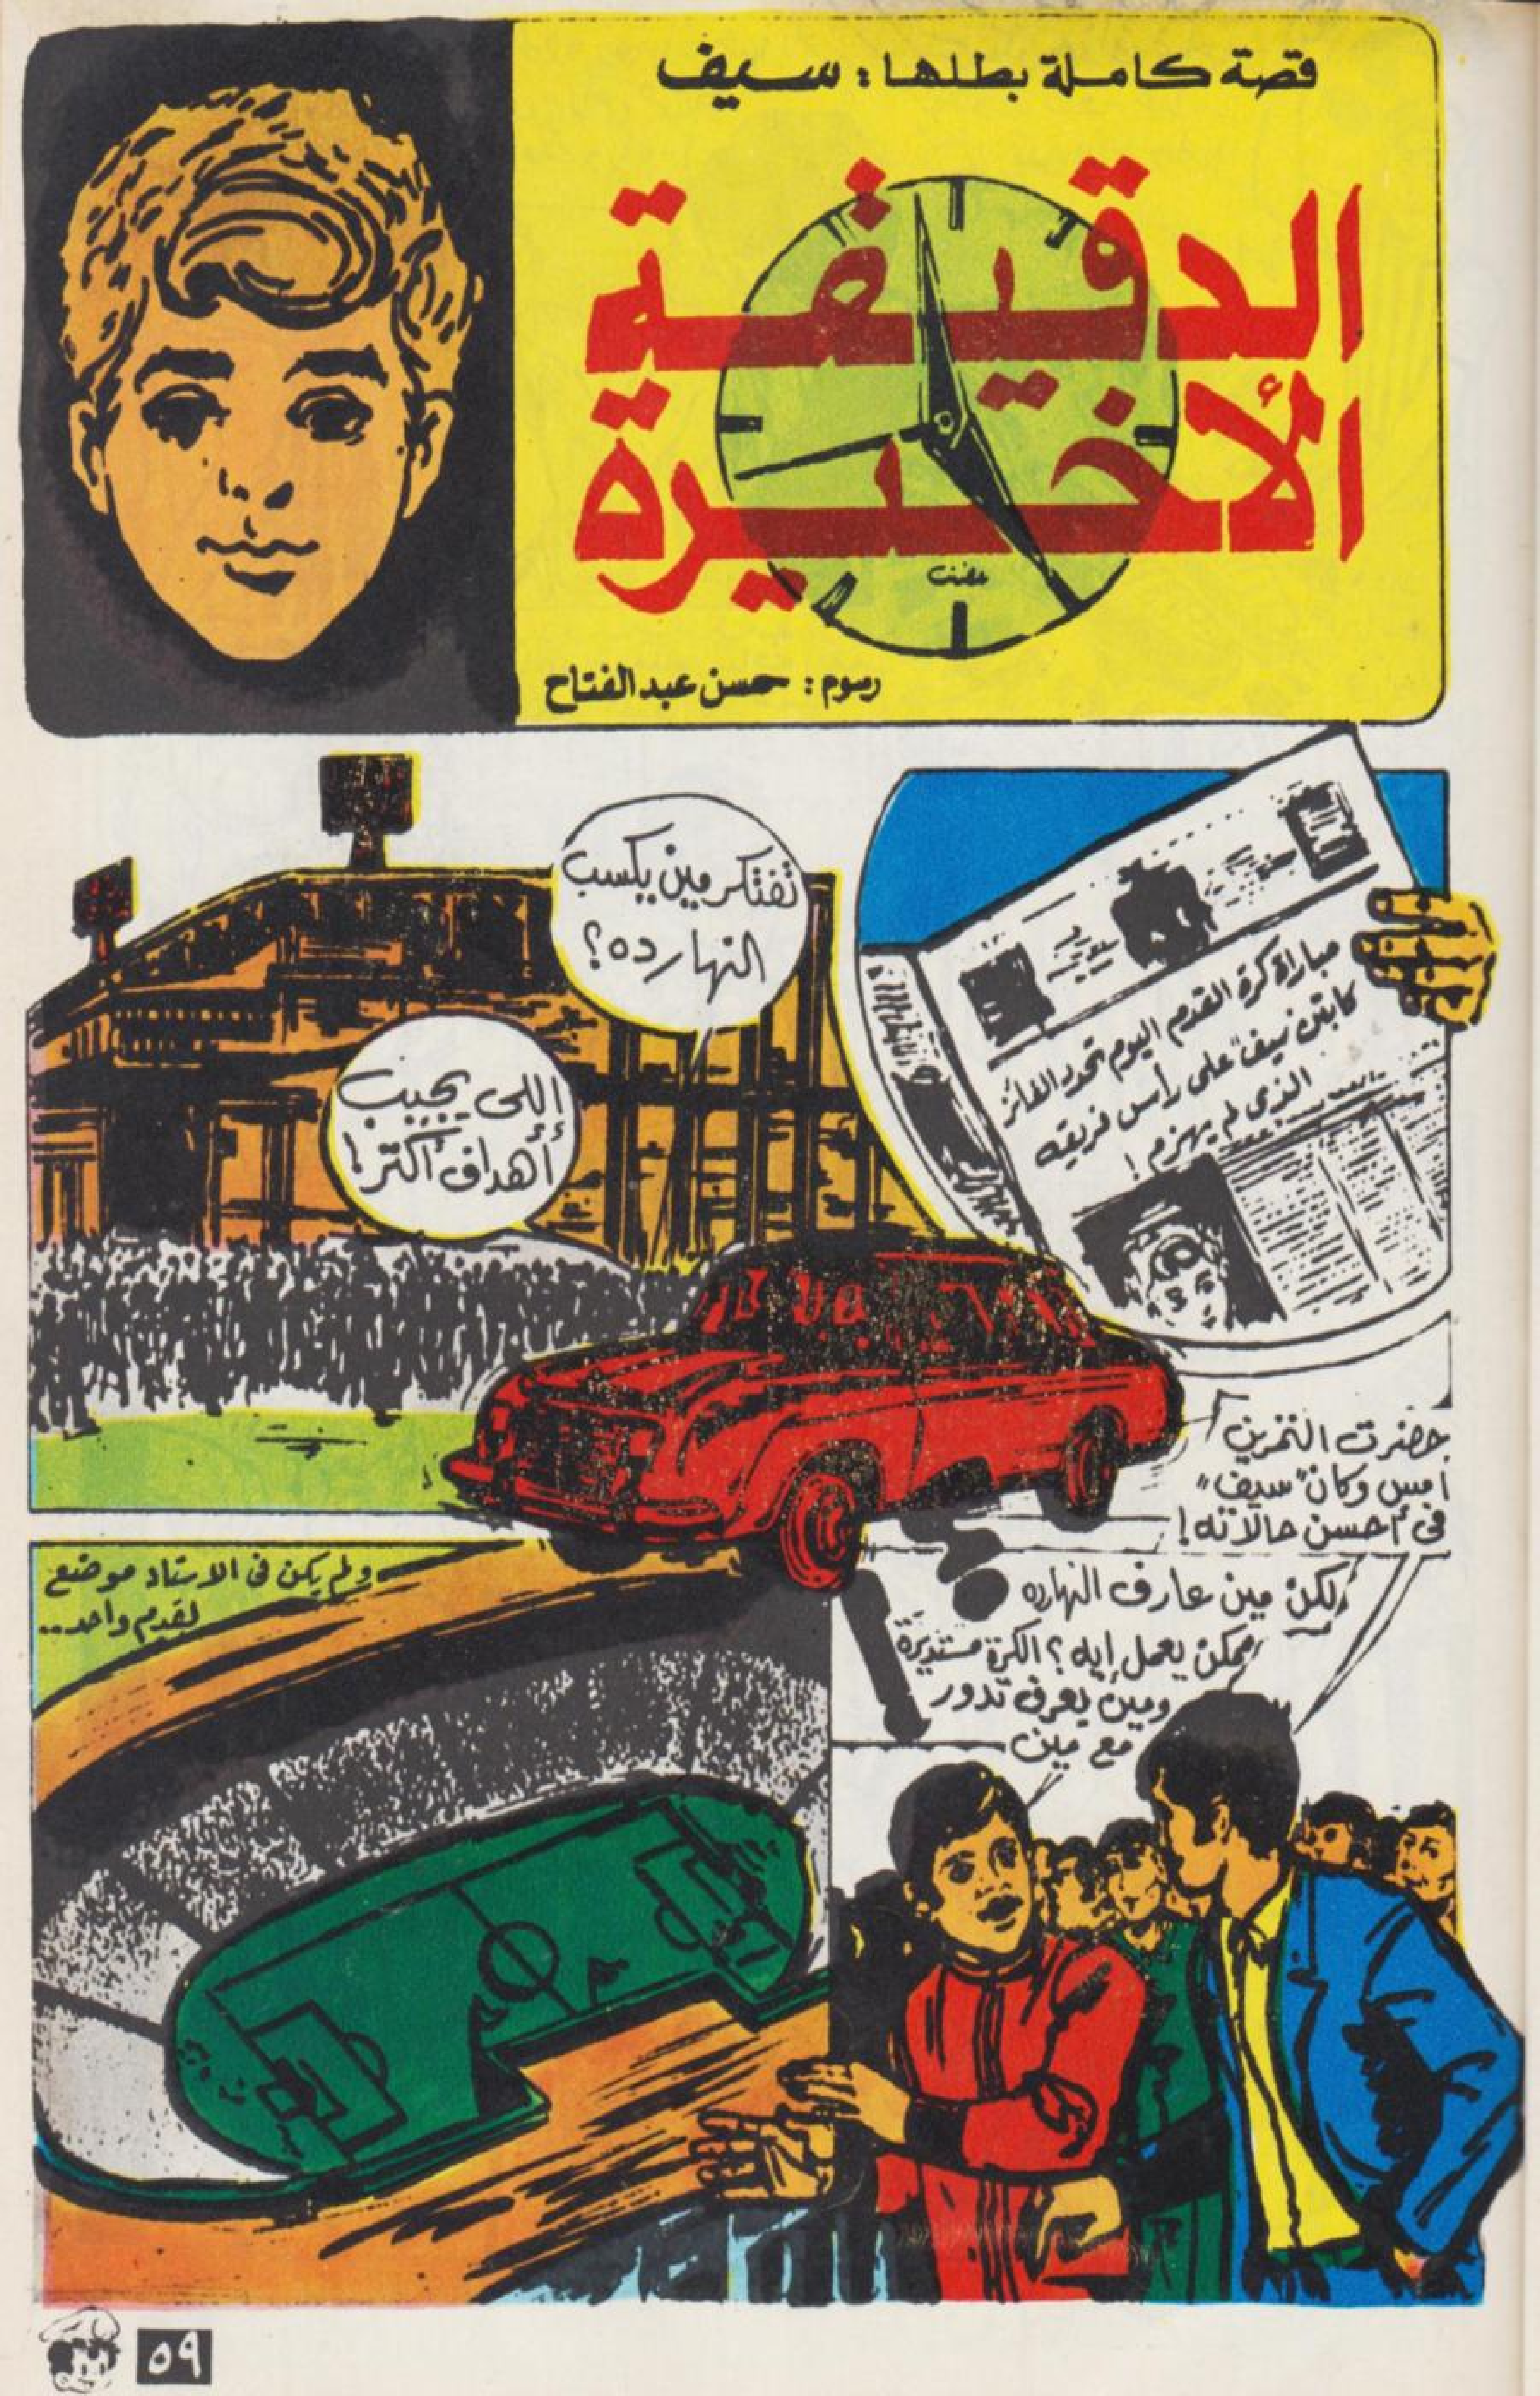 قصة كاملة بطلها : سيف
الدقيقة
الأخيرة
عفت
رسوم : حسن عبد الفتاح
مباراة كرة القدم اليوم تحدد الفائز
كابتن "سيف" على رأس فريقه
الذى لم يهزم !
تفتكر مين يكسب
النهارده ؟
اللى يجيب
أهداف أكتر !
حضرت التمرين
امبس وكان "سيف"
فى أحسن حالاته !
لكن مين عارف النهارده
ممكن يعمل إيه ؟ الكرة مستديرة
ومين يعرف تدور
مع مين
ولم يكن فى الاستاد موضع
لقدم واحد ..
٥٩